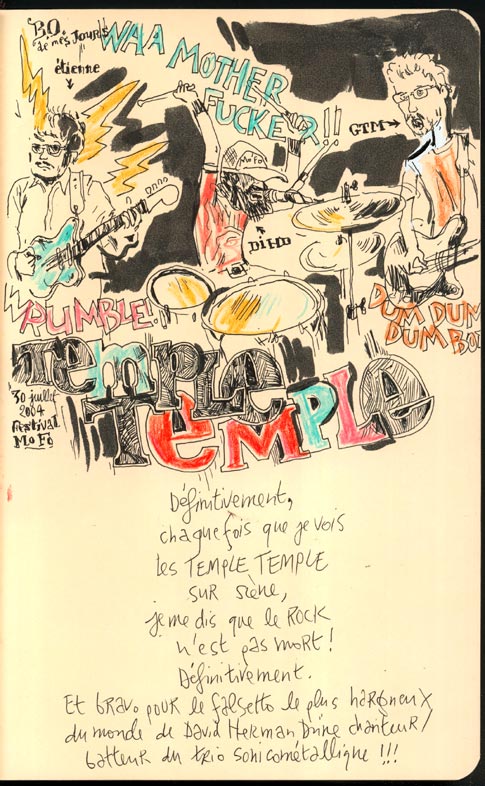 B.O.
de mes JOURS
étienne
WAA MOTHER
FUCKER!!
GTM
MoFo
DIEDO
RUMBLE!
DUM DUM
DUM BOI
TEMPLE
TEMPLE
30 juillet
2004
Festival
MoFo
Définitivement,
chaque fois que je vois
les TEMPLE TEMPLE
SUR scène,
je me dis que le ROCK
n'est pas mort!
Définitivement.
Et bravo pour le falsetto le plus hargneux
du monde de David Herman Düne chanteur/
batteur du trio sonicométallique !!!